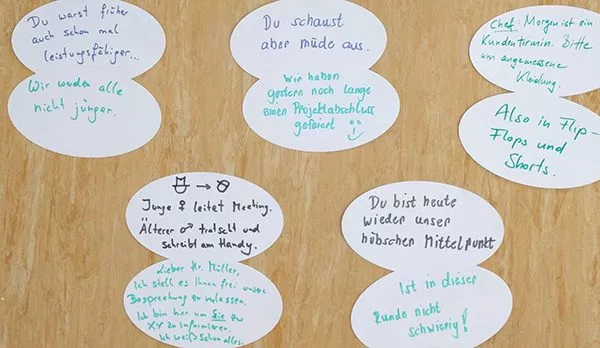 Du warst früher
auch schon mal
leistungsfähiger...
Wir werden alle
nicht jünger.
Du schaust
aber müde aus.
Wir haben
gestern noch lange
einen Projektabschluss
gefeiert
Chef: Morgen ist ein
Kundentermin. Bitte
um angemessene
Kleidung.
Also in Flip-
Flops und
Shorts.
→
Junge ♀ leitet Meeting.
Älterer ♂ tratscht und
schreibt am Handy.
Lieber Hr. Müller,
Ich stell es Ihnen frei unsere
Besprechung zu verlassen.
Ich bin hier um Sie zu
XY zu informieren.
Ich weiß schon alles.
Du bist heute
wieder unser
hübscher Mittelpunkt
Ist in dieser
Runde nicht
schwierig!